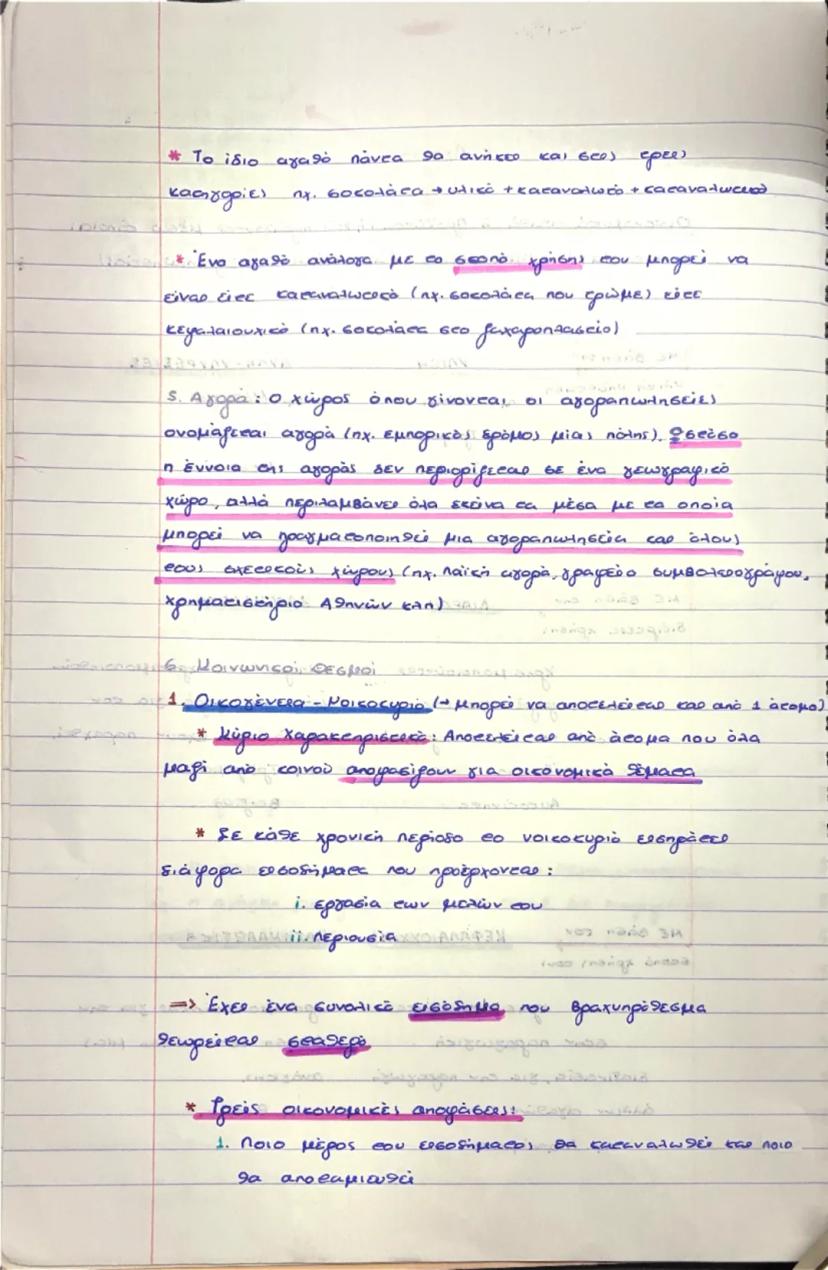 * Το ίδιο αγαθό πάντα θα ανήκει και στις τρεις
κατηγορίες πχ. σοκολάτα → υλικό + καταναλωτό + καταναλωτικό
* Ένα αγαθό ανάλογα με το σκοπό χρήσης του μπορεί να
είναι είτε καταναλωτικό (πχ. σοκολάτα που τρώμε) είτε
κεφαλαιουχικό (πχ. σοκολάτα στο ζαχαροπλαστείο)
5. Αγορά: Ο χώρος όπου γίνονται οι αγοραπωλησίες
ονομάζεται αγορά (πχ. εμπορικός δρόμος μίας πόλης). Ωστόσο
η έννοια της αγοράς δεν περιορίζεται σε ένα γεωγραφικό
χώρο, αλλά περιλαμβάνει όλα εκείνα τα μέσα με τα οποία
μπορεί να πραγματοποιηθεί μια αγοραπωλησία και όλους
τους σχετικούς χώρους (πχ. λαϊκή αγορά, γραφείο συμβολαιογράφου,
χρηματιστήριο Αθηνών κλπ)
6. Κοινωνικοί Θεσμοί
1. Οικογένεια - Νοικοκυριό (→ μπορεί να αποτελείται και από 1 άτομο)
* Κύριο Χαρακτηριστικό: Αποτελείται από άτομα που όλα
μαζί από κοινού αποφασίζουν για οικονομικά θέματα
* Σε κάθε χρονική περίοδο το νοικοκυριό εισπράττει
διάφορα εισοδήματα που προέρχονται:
i. εργασία των μελών του
ii. περιουσία
⇒ Έχει ένα συνολικό εισόδημα που βραχυπρόθεσμα
θεωρείται σταθερό
* Τρείς οικονομικές αποφάσεις:
1. Ποιο μέρος του εισοδήματος θα καταναλωθεί και ποιο
θα αποταμιευθεί